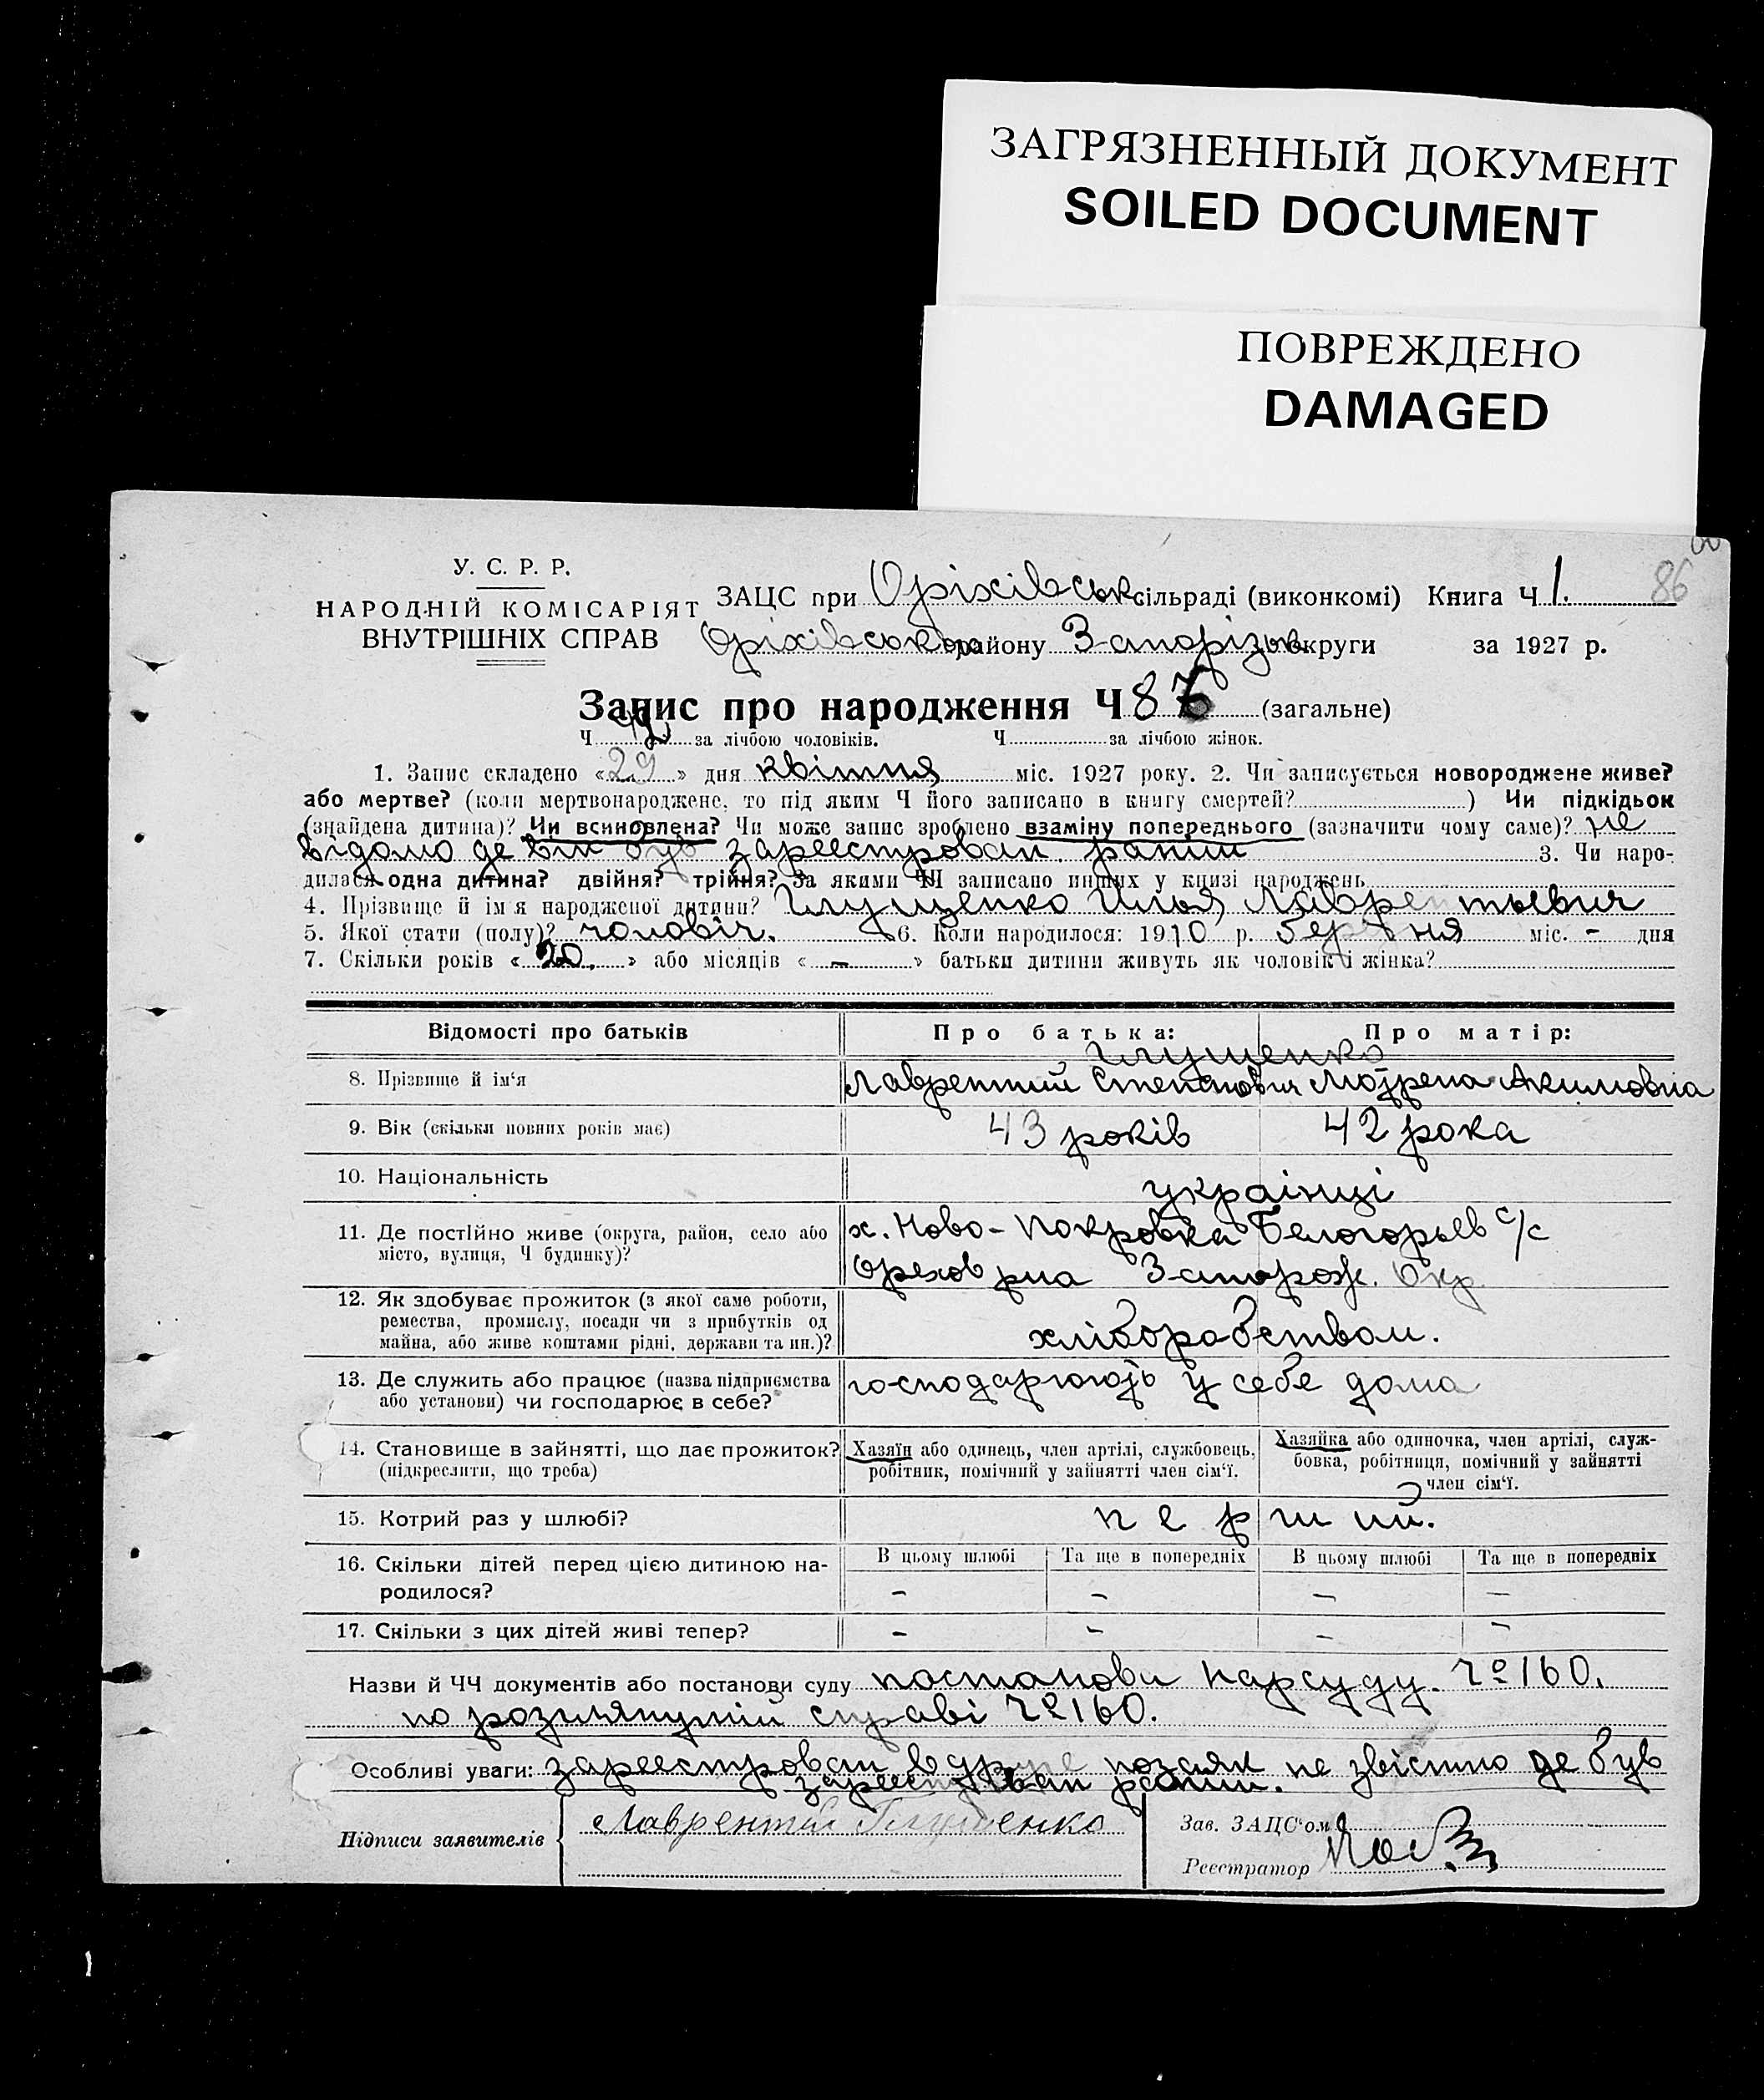 ЗАГРЯЗНЕННЫЙ ДОКУМЕНТ
SOILED DOCUMENT
ПОВРЕЖДЕНО
DAMAGED
У. С. Р. Р.
НАРОДНІЙ КОМІСАРІЯТ
ВНУТРІШНІХ СПРАВ
ЗАЦС при Оріхівськ сільраді (виконкомі) Книга Ч 1. 86
Оріхівського району Запорізьк округи за 1927 р.
Запис про народження Ч 86 (загальне)
Ч за лічбою чоловіків. Ч за лічбою жінок.
1. Запис складено «29» дня квітня міс. 1927 року. 2. Чи записується новороджене живе?
або мертве? (коли мертвонароджене, то під яким Ч його записано в книгу смертей? ) Чи підкідьок
(знайдена дитина)? Чи всиновлена? Чи може запис зроблено взаміну попереднього (зазначити чому саме)? не
відомо де він був зареестрован раніш 3. Чи наро-
дилася одна дитина? двійня? трійня? За якими ЧЧ записано инших у книзі народжень
4. Прізвище й ім'я народженої дитини? Глущенко Илья Лаврентьевич
5. Якої стати (полу)? чоловіч. 6. Коли народилося: 1910 р. березня міс. - дня
7. Скільки років «20.» або місяців «-» батьки дитини живуть як чоловік і жінка?
Відомості про батьків Про батька: Про матір:
Глущенко
8. Прізвище й ім'я Лаврентий Степанович Мотрена Акимовна
9. Вік (скільки повних років має) 43 років 42 рока
10. Національність украінці
11. Де постійно живе (округа, район, село або
місто, вулиця, Ч будинку)?
х. Ново-Покровка Белогорьев с/с
Орехов рна Запорож. Окр.
12. Як здобуває прожиток (з якої саме роботи,
ремества, промислу, посади чи з прибутків од
майна, або живе коштами рідні, держави та ин.)?
хліборобством.
13. Де служить або працює (назва підприємства
або установи) чи господарює в себе?
господарюють у себе дома
14. Становище в зайнятті, що дає прожиток?
(підкреслити, що треба)
Хазяїн або одинець, член артілі, службовець,
робітник, помічний у зайнятті член сім'ї.
Хазяйка або одиночка, член артілі, служ-
бовка, робітниця, помічний у зайнятті
член сім'ї.
15. Котрий раз у шлюбі? перший.
16. Скільки дітей перед цією дитиною на-
родилося?
В цьому шлюбі Та ще в попередніх В цьому шлюбі Та ще в попередніх
- - - -
17. Скільки з цих дітей живі тепер? - - - -
Назви й ЧЧ документів або постанови суду постанови нарсуду. Ч° 160.
по розглянутій справі Ч° 160.
Особливі уваги: зареестрован вдруге позаяк не звістно де був
зареестрован раніш.
Підписи заявителів Лаврентий Глущенко
Зав. ЗАЦС'ом
Реєстратор